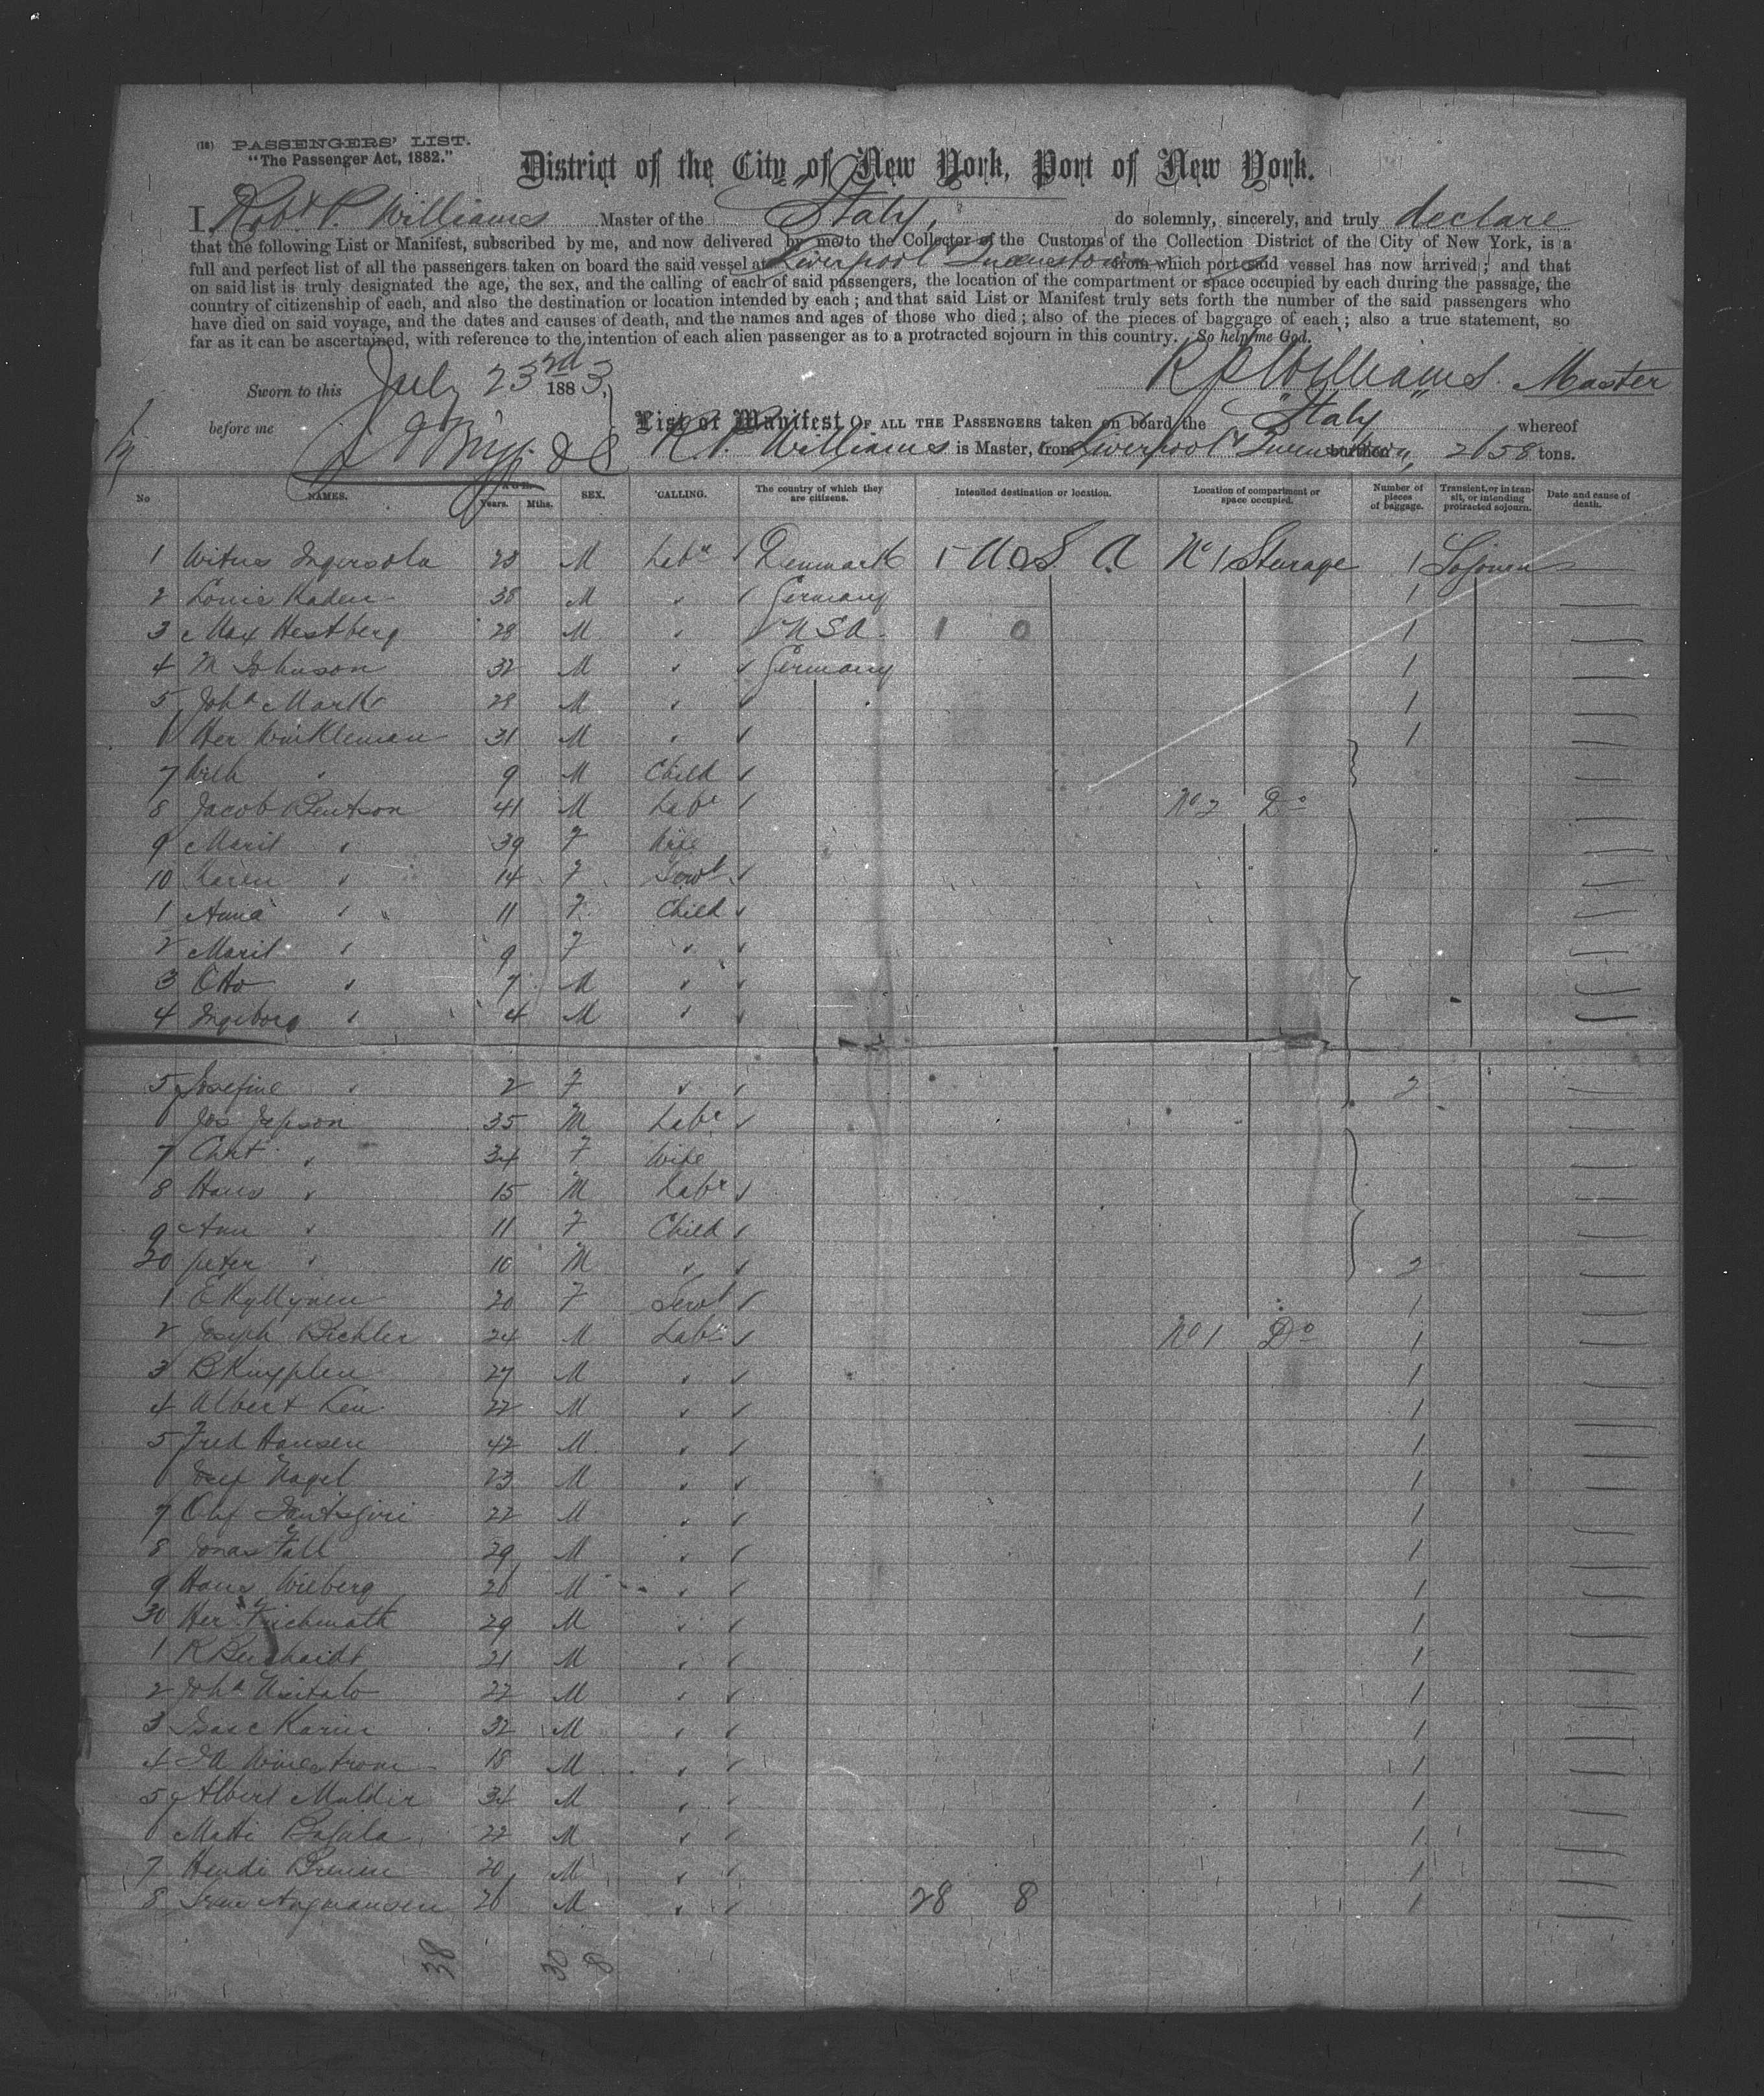 (18) PASSENGERS' LIST.
"The Passenger Act, 1882."
District of the City of New York, Port of New York.
I, Robt. P. Williams Master of the "Italy," do solemnly, sincerely, and truly declare
that the following List or Manifest, subscribed by me, and now delivered by me to the Collector of the Customs of the Collection District of the City of New York, is a
full and perfect list of all the passengers taken on board the said vessel at Liverpool Queenstown from which port said vessel has now arrived; and that
on said list is truly designated the age, the sex, and the calling of each of said passengers, the location of the compartment or space occupied by each during the passage, the
country of citizenship of each, and also the destination or location intended by each; and that said List or Manifest truly sets forth the number of the said passengers who
have died on said voyage, and the dates and causes of death, and the names and ages of those who died; also of the pieces of baggage of each; also a true statement, so
far as it can be ascertained, with reference to the intention of each alien passenger as to a protracted sojourn in this country. So help me God.
Sworn to this July 23rd 1883, R P Williams. Master
before me
List or Manifest OF ALL THE PASSENGERS taken on board the "Italy" whereof
R. P. Williams is Master, from Liverpool & Queenstown, burthen 2658 tons.
No NAMES. AGE. Years. Mths. SEX. CALLING. The country of which they are citizens. Intended destination or location. Location of compartment or space occupied. Number of pieces of baggage. Transient, or in transit, or intending protracted sojourn. Date and cause of death.
1 Witus Ingersola 23 M Labr Denmark U.S.A No 1 Steerage 1 Sojourn
2 Louis Kaden 38 M " Germany 1
3 Max Hestberg 28 M " U S A. 1 0 1
4 M Johnson 32 M " Germany 1
5 Joha Mark 29 M " 1
6 Her Winkleman 31 M " 1
7 Wilh " 9 M Child
8 Jacob Bentson 41 M Labr No 2 Do
9 Marit " 39 F Wife
10 Karen " 14 F Servt
1 Anna " 11 F Child
2 Marit " 9 F "
3 Otto " 7 M "
4 Ingeborg " 4 M "
5 Josefine " 2 F " 2
6 Jos Jepson 35 M Labr
7 Chrt " 34 F Wife
8 Hans " 15 M Labr
9 Ann " 11 F Child
20 Peter " 10 M " 2
1 20 F Servt 1
2 Joseph Bichler 24 M Labr No 1 Do 1
3 27 M " 1
4 Albert Leu 22 M " 1
5 Fred Hansen 42 M " 1
6 Nagel 23 M " 1
7 Olaf 22 M " 1
8 Jonas Fall 29 M " 1
9 Hans Wieberg 26 M " 1
30 Her 29 M " 1
1 R 21 M " 1
2 Joha 22 M " 1
3 Isaac Karin 32 M " 1
4 18 M " 1
5 Albert Muldir 34 M " 1
6 Matti 22 M " 1
7 20 M " 1
8 26 M " 28 8 1
38 30 8